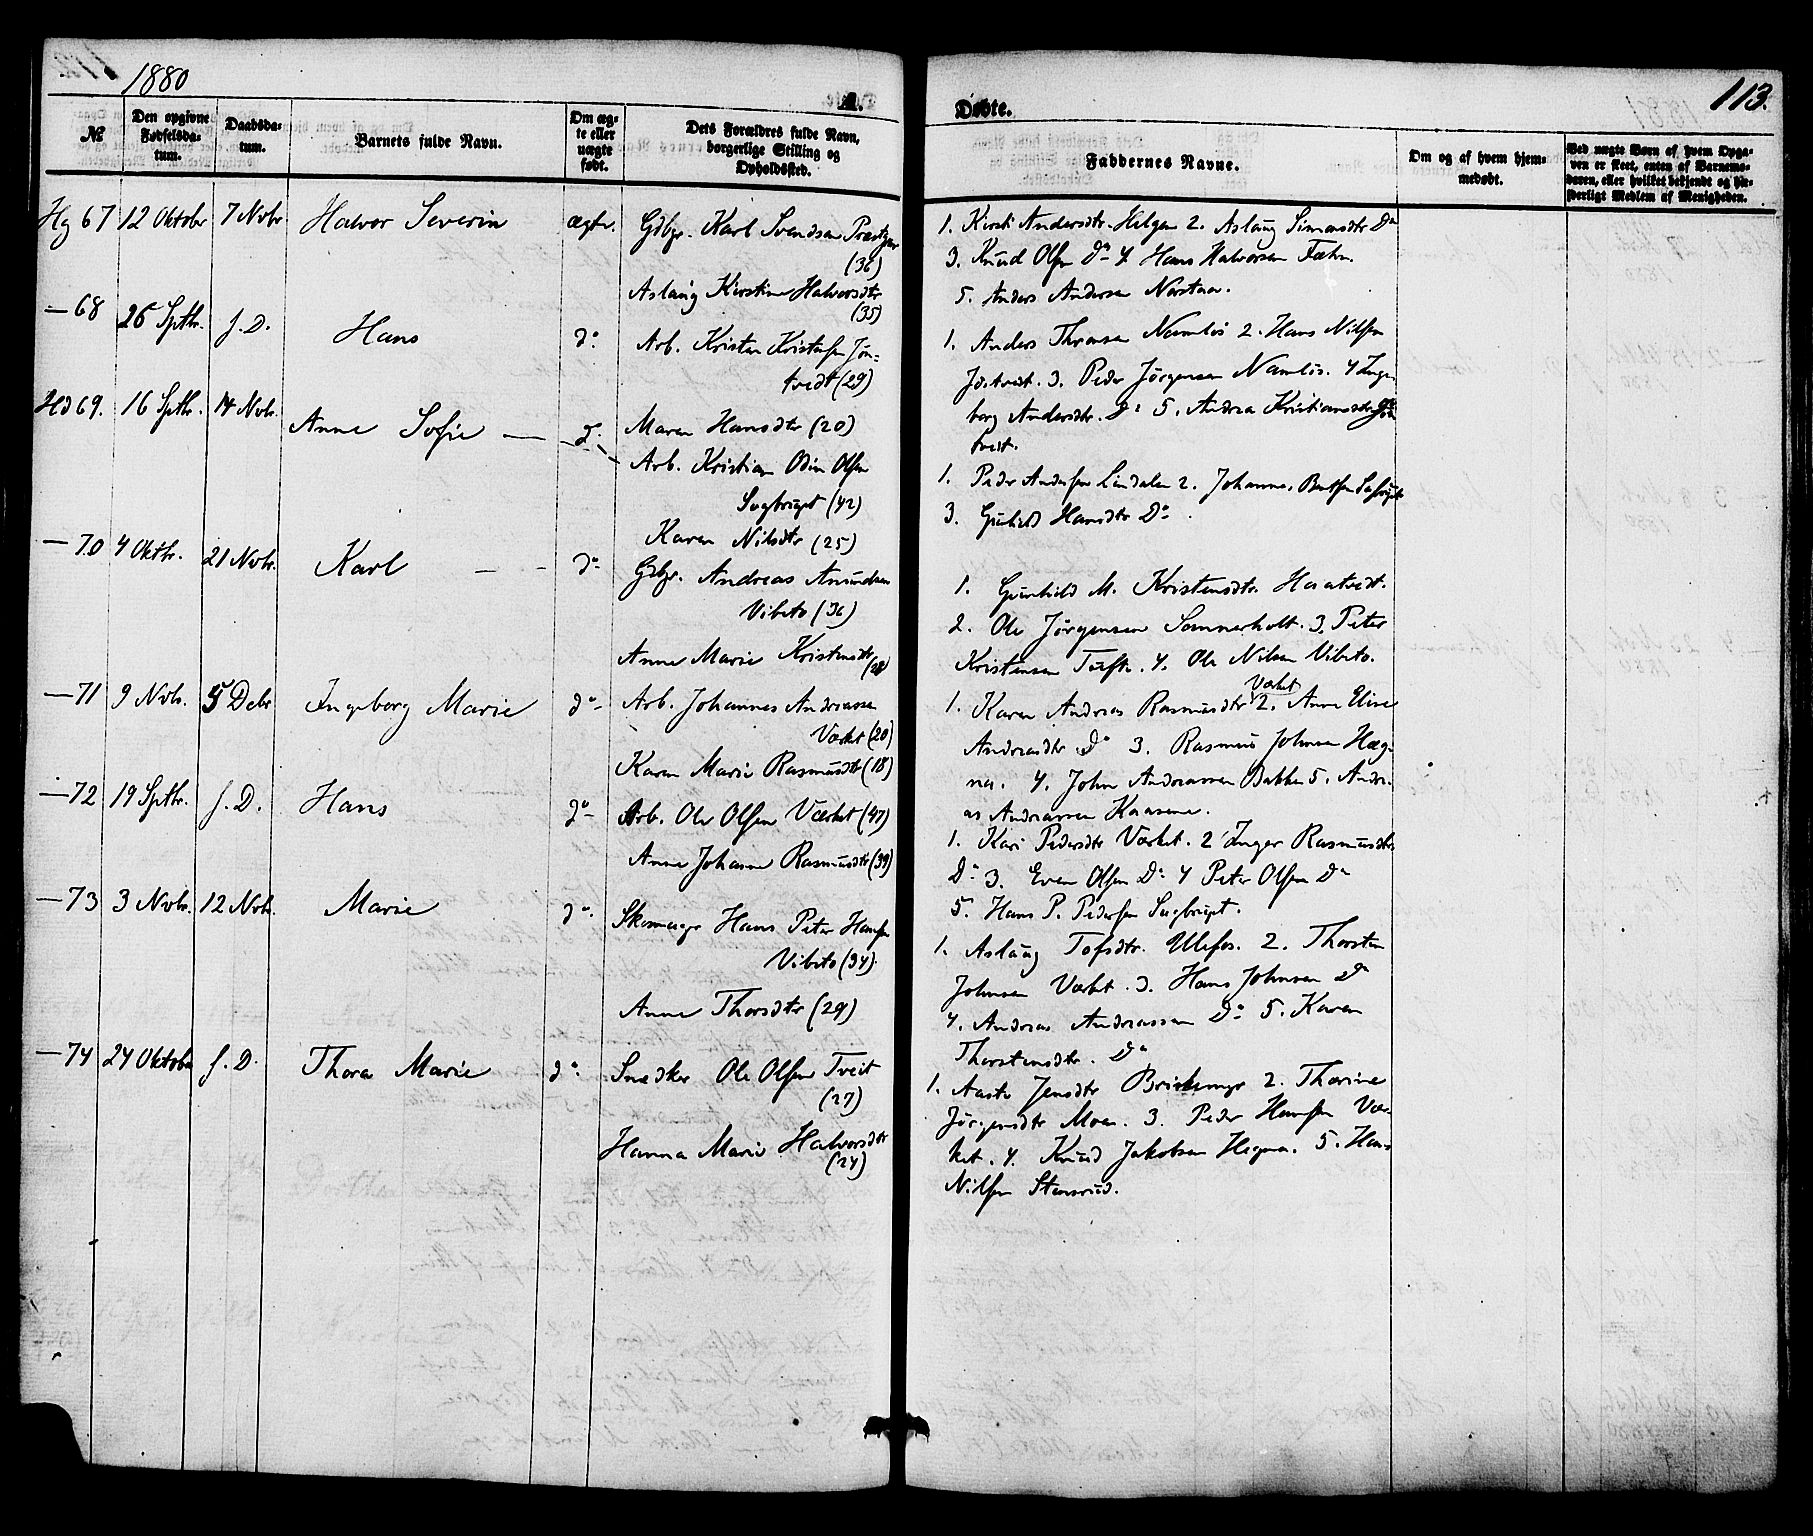 1880
A.
Døbte.
113.
№
Den opgivne Fødselsdatum.
Daabsdatum.
Barnets fulde Navn.
Om ægte eller uægte født.
Dets Forældres fulde Navn, borgerlige Stilling og Opholdssted.
Faddernes Navne.
Om og af hvem hjemmedøbt.
Ved uægte Børn af hvem Opgaven er skeet, enten af Barnemoderen, eller hvilket bekjendt og hæderligt Medlem af Menigheden.
Hg 67 12 Oktobr 7 Novbr Halvor Severin ægte.
Gdbgr. Karl Svendsen
(36)
Aslaug Kirstine Halvorsdtr
(35)
1. Kirsti Andersdtr. Helgen 2. Aslaug Simonsdtr Do
3. Knud Olsen Do 4. Hans Halvorsen Fæhn.
5. Anders Andersen Norstaa.
— 68 26 Sptbr. s. D. Hans do
Arb. Kristen Kristensen Jøn-
tvedt (29)
Maren Hansdtr (20)
1. Anders Thronsen Namløs 2. Hans Nilsen
3. Peder Jørgensen Namløs. 4 Inge-
borg Andersdtr. Do 5. Andrea Kristiansdtr
tveit.
Hd 69. 16 Sptbr. 14 Nvbr. Anne Sofie — do
Arb. Kristian Odin Olsen
Sagbruget (42)
Karen Nilsdtr (25)
1. Peder Andersen Lindalen 2. Johannes Bentsen
3. Gunhild Hansdtr Do
— 70 4 Oktbr. 21 Nvbr. Karl — - do
Gdbgr. Andreas Amundsen
Vibeto (36)
Anne Marie Kristensdtr (28)
1. Gunhild M. Kristensdtr. Haatvedt.
2. Ole Jørgensen Sannerholt. 3. Peter
Kristensen Tufte. 4. Ole Nilsen Vibeto.
— 71 9 Nvbr. 5 Debr Ingeborg Marie do
Arb. Johannes Andreassen
Værket (20)
Karen Marie Rasmusdtr (18)
1. Karen Andrea Rasmusdtr Værket 2. Anne Elise
Andreasdtr Do 3. Rasmus Johnsen Hæg-
na. 4. John Andreassen Bakken 5. Andre-
as Andreassen Kaasene.
— 72 19 Sptbr. s. D. Hans do
Arb. Ole Olsen Værket (47)
Anne Johanne Rasmusdtr (39)
1. Kari Pedersdtr Værket. 2 Inger Rasmusdtr.
Do 3. Even Olsen Do 4 Peter Olsen Do
5. Hans P. Pedersen Sagbruget.
— 73 3 Nvbr. 12 Nvbr. Marie do
Skomager Hans Peter Hansen
Vibeto (34)
Anne Thorsdtr (29)
1. Aslaug Tofsdtr. Ulefos. 2. Thorsten
Johnsen Værket. 3. Hans Johnsen Do
4. Andreas Andreassen Do 5. Karen
Thorstensdtr. Do
— 74 24 Oktobr s. D. Thora Marie do
Snedker Ole Olsen Tveit
(27)
Hanna Marie Halvorsdtr
(24)
1. Aaste Jensdtr 2. Thorine
Jørgensdtr Moen. 3. Peder Hansen Vær-
ket. 4. Knud Jakobsen Hegna. 5. Hans
Nilsen Stensrud.